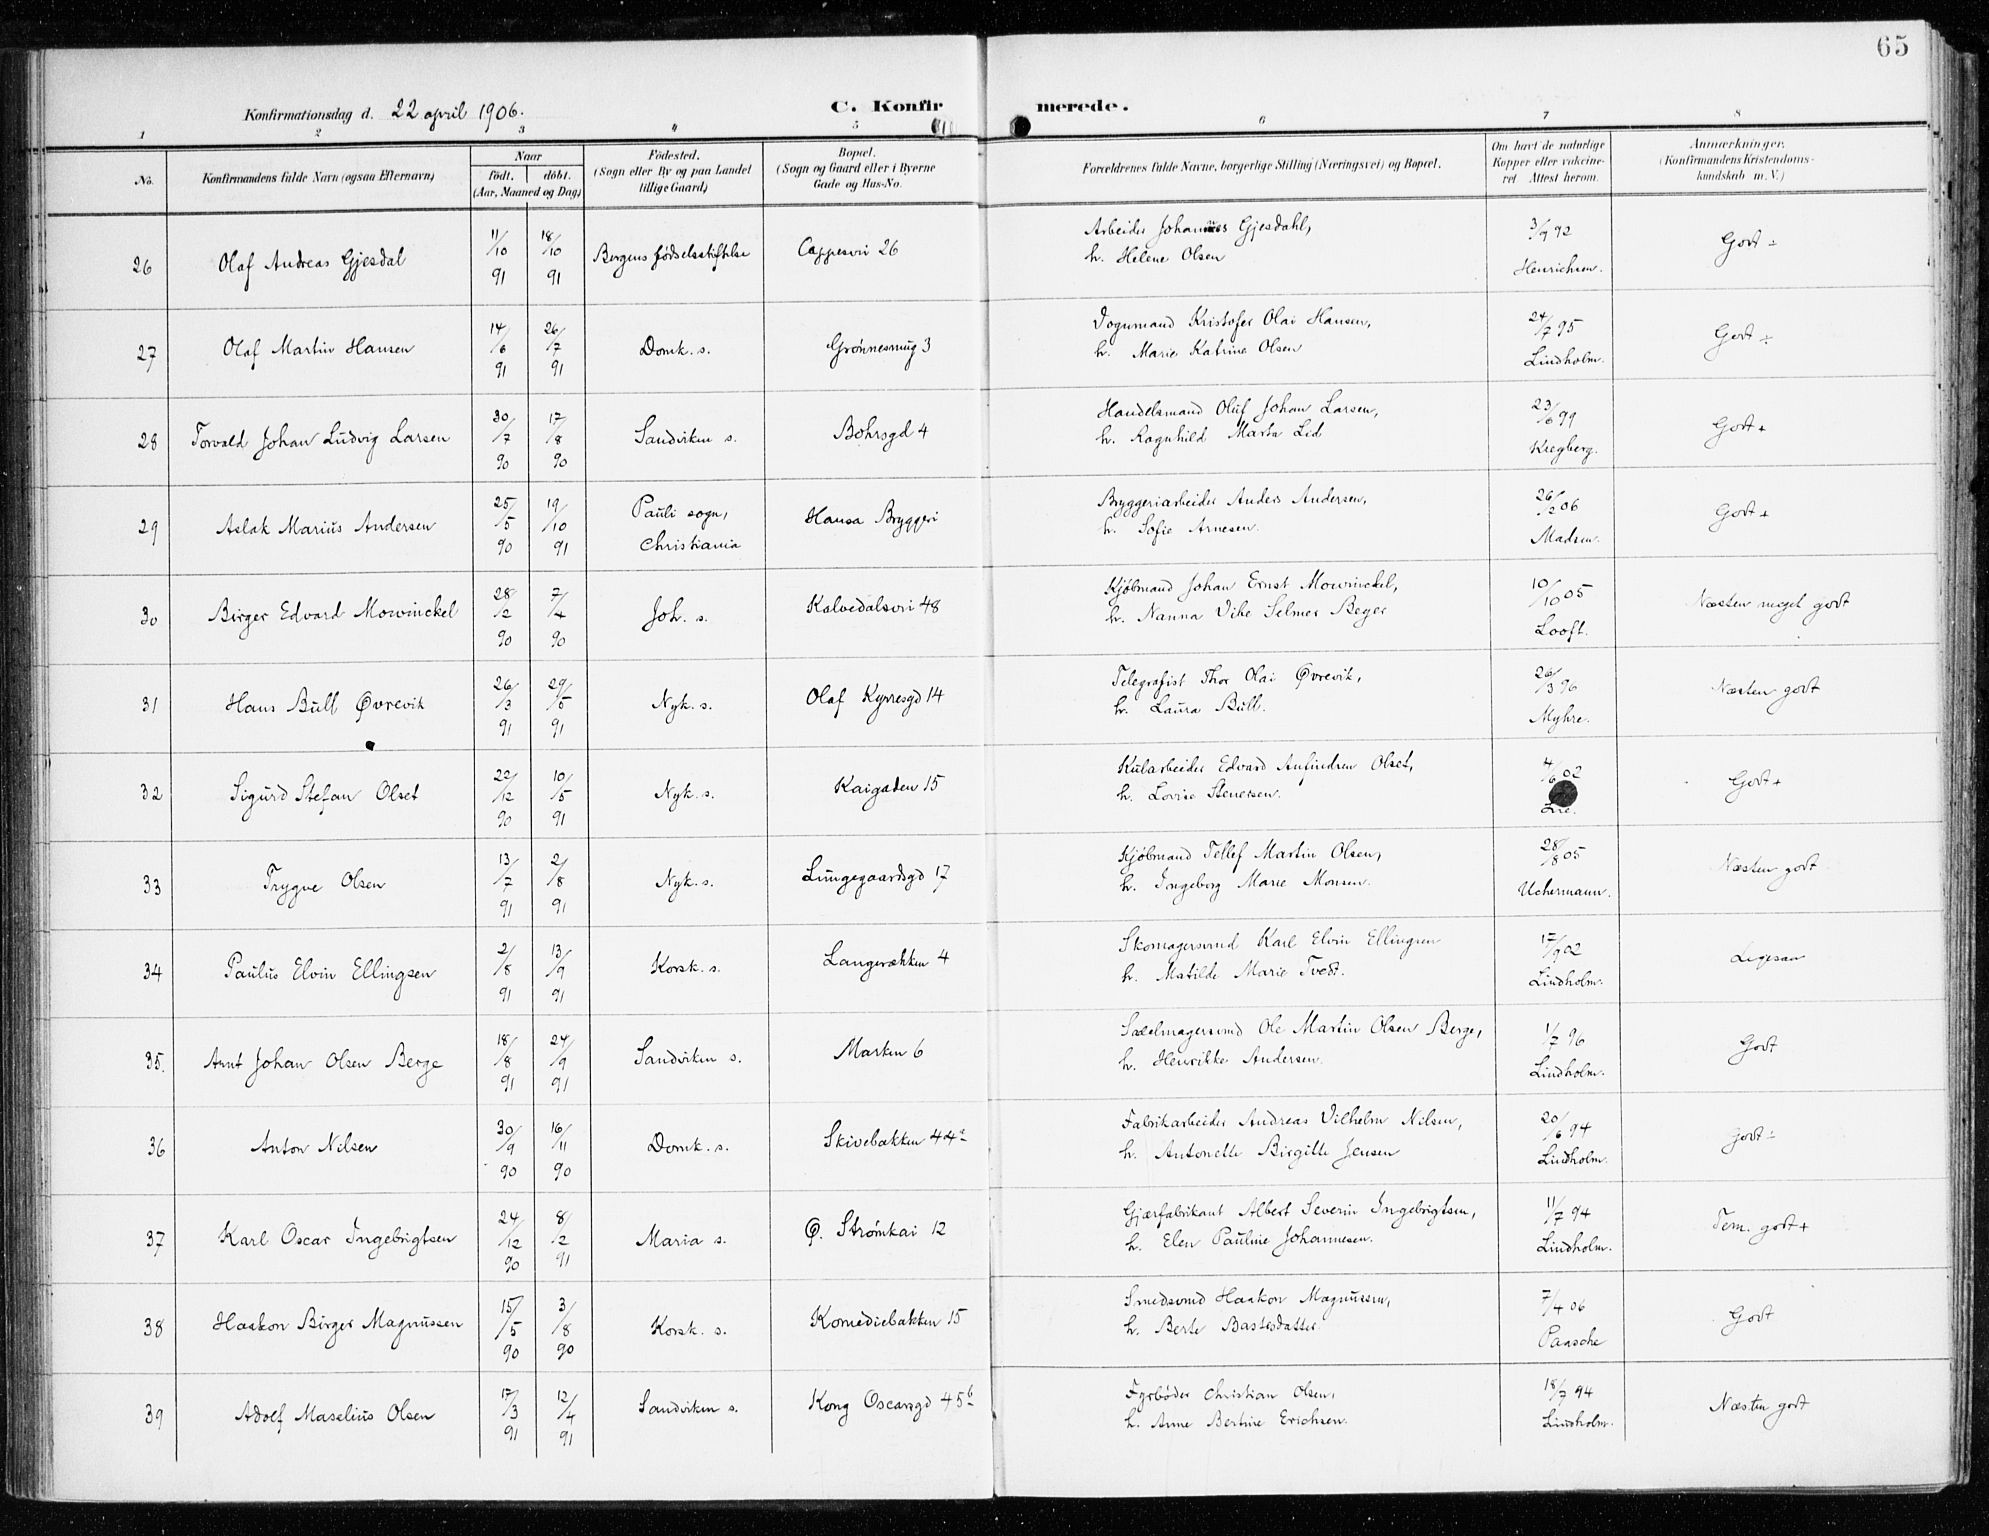 65
Konfirmationsdag d. 22 april 1906. C. Konfirmerede.
1 2 3 4 5 6 7 8
No. Konfirmandens fulde Navn (ogsaa Efternavn) Naar født. døbt. (Aar, Maaned og Dag) Fødested. (Sogn eller By og paa Landet tillige Gaard) Bopæl. (Sogn og Gaard eller i Byerne Gade og Hus-No. Forældrenes fulde Navne, borgerlige Stilling (Næringsvei) og Bopæl. Om havt de naturlige Kopper eller vaccineret Attest herom. Anmærkninger. (Konfirmandens Kristendomskundskab m. V.)
26 Olaf Andreas Gjesdal 11/10 91 18/10 91 Bergens fødselsstiftelse Cappesvei 26 Arbeider Johannes Gjesdahl, 3/7 92 Godt ÷
h. Helene Olsen Henrichsen.
27 Olaf Martin Hansen 14/6 91 26/7 91 Domk. s. Grønnesmug 3 Dogumand Kristofer Olai Hansen, 24/7 95 Godt ÷
h. Marie Katrine Olsen Lindholm.
28 Torvald Johan Ludvig Larsen 30/7 90 17/8 90 Sandviken s. Bohrsgd 4 Handelsmand Oluf Johan Larsen, 23/6 99 Godt +
h. Ragnhild Marta Lid Kregberg.
29 Aslak Marius Andersen 25/5 90 19/10 91 Pauli sogn, Christiania Hansa Bryggeri Bryggeriarbeider Anders Andersen, 26/2 06 Godt +
h. Sofie Arnesen. Madsen.
30 Birger Edvard Mowinckel 28/2 90 7/4 90 Joh. s. Kalvedalsvei 48 Kjøbmand Johan Ernst Mowinckel, 10/10 05 Næsten meget godt
h. Nanna Vibe Selmer Beyer Looft.
31 Hans Bull Øvrevik 26/3 91 29/5 91 Nyk. s. Olaf Kyrresgd 14 Telegrafist Thor Olai Øvrevik, 26/3 96 Næsten godt
h. Laura Bull. Myhre.
32 Sigurd Stefan Olset 22/12 90 10/5 91 Nyk. s. Kaigaden 15 Kularbeider Edvard Anfindsen Olset, 4/6 02 Godt +
h. Lovise Stenersen. Lie.
33 Trygve Olsen 13/7 91 2/8 91 Nyk. s. Lungegaardsgd 17 Kjøbmand Tellef Martin Olsen, 28/8 05 Næsten godt
h. Ingeborg Marie Monsen. Uchermann.
34 Paulus Elvin Ellingsen 2/8 91 13/9 91 Korsk. s. Langerækken 4 Skomagersvend Karl Elvin Ellingsen 17/9 02 Ligesaa
h. Matilde Marie Tvedt. Lindholm.
35. Arnt Johan Olsen Berge 18/8 91 24/9 91 Sandviken s. Marken 6 Sadelmagersvend Ole Martin Olsen Berge, 1/7 96 Godt
h. Henrikke Andersen. Lindholm.
36 Anton Nilsen 30/9 90 16/11 90 Domk. s. Skivebakken 44a Fabrikarbeider Andreas Vilhelm Nilsen, 20/6 94 Godt ÷
h. Antonette Birgitte Jensen Lindholm.
37 Karl Oscar Ingebrigtsen 24/12 90 8/2 91 Maria s. Ø. Strømkai 12 Gjærfabrikant Albert Severin Ingebrigtsen, 11/7 94 Tem. godt +
h. Elen Pauline Johannesen. Lindholm.
38 Haakon Birger Magnussen 15/5 90 3/8 90 Korsk. s. Komediebakken 15 Smedsvend Haakon Magnussen, 7/4 06 Godt
h. Berte Bastesdatter Paasche
39 Adolf Maselius Olsen 17/3 91 12/4 91 Sandviken s. Kong Oscarsgd 45b Fyrbøder Christian Olsen, 18/7 94 Næsten godt
h. Anne Bertine Erichsen. Lindholm.